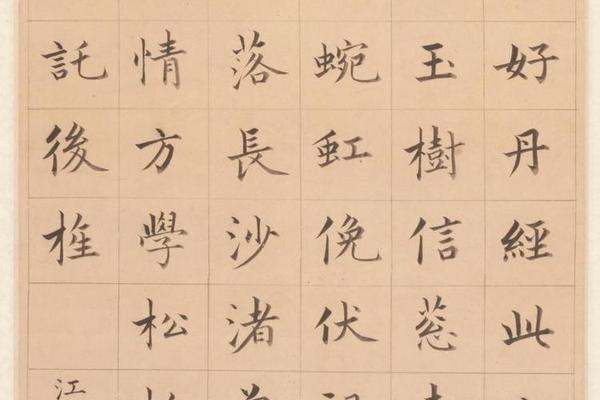 好丹經此
玉樹信葱
蜿虹俛伏
落長沙渚
情方學松
託後旌
江